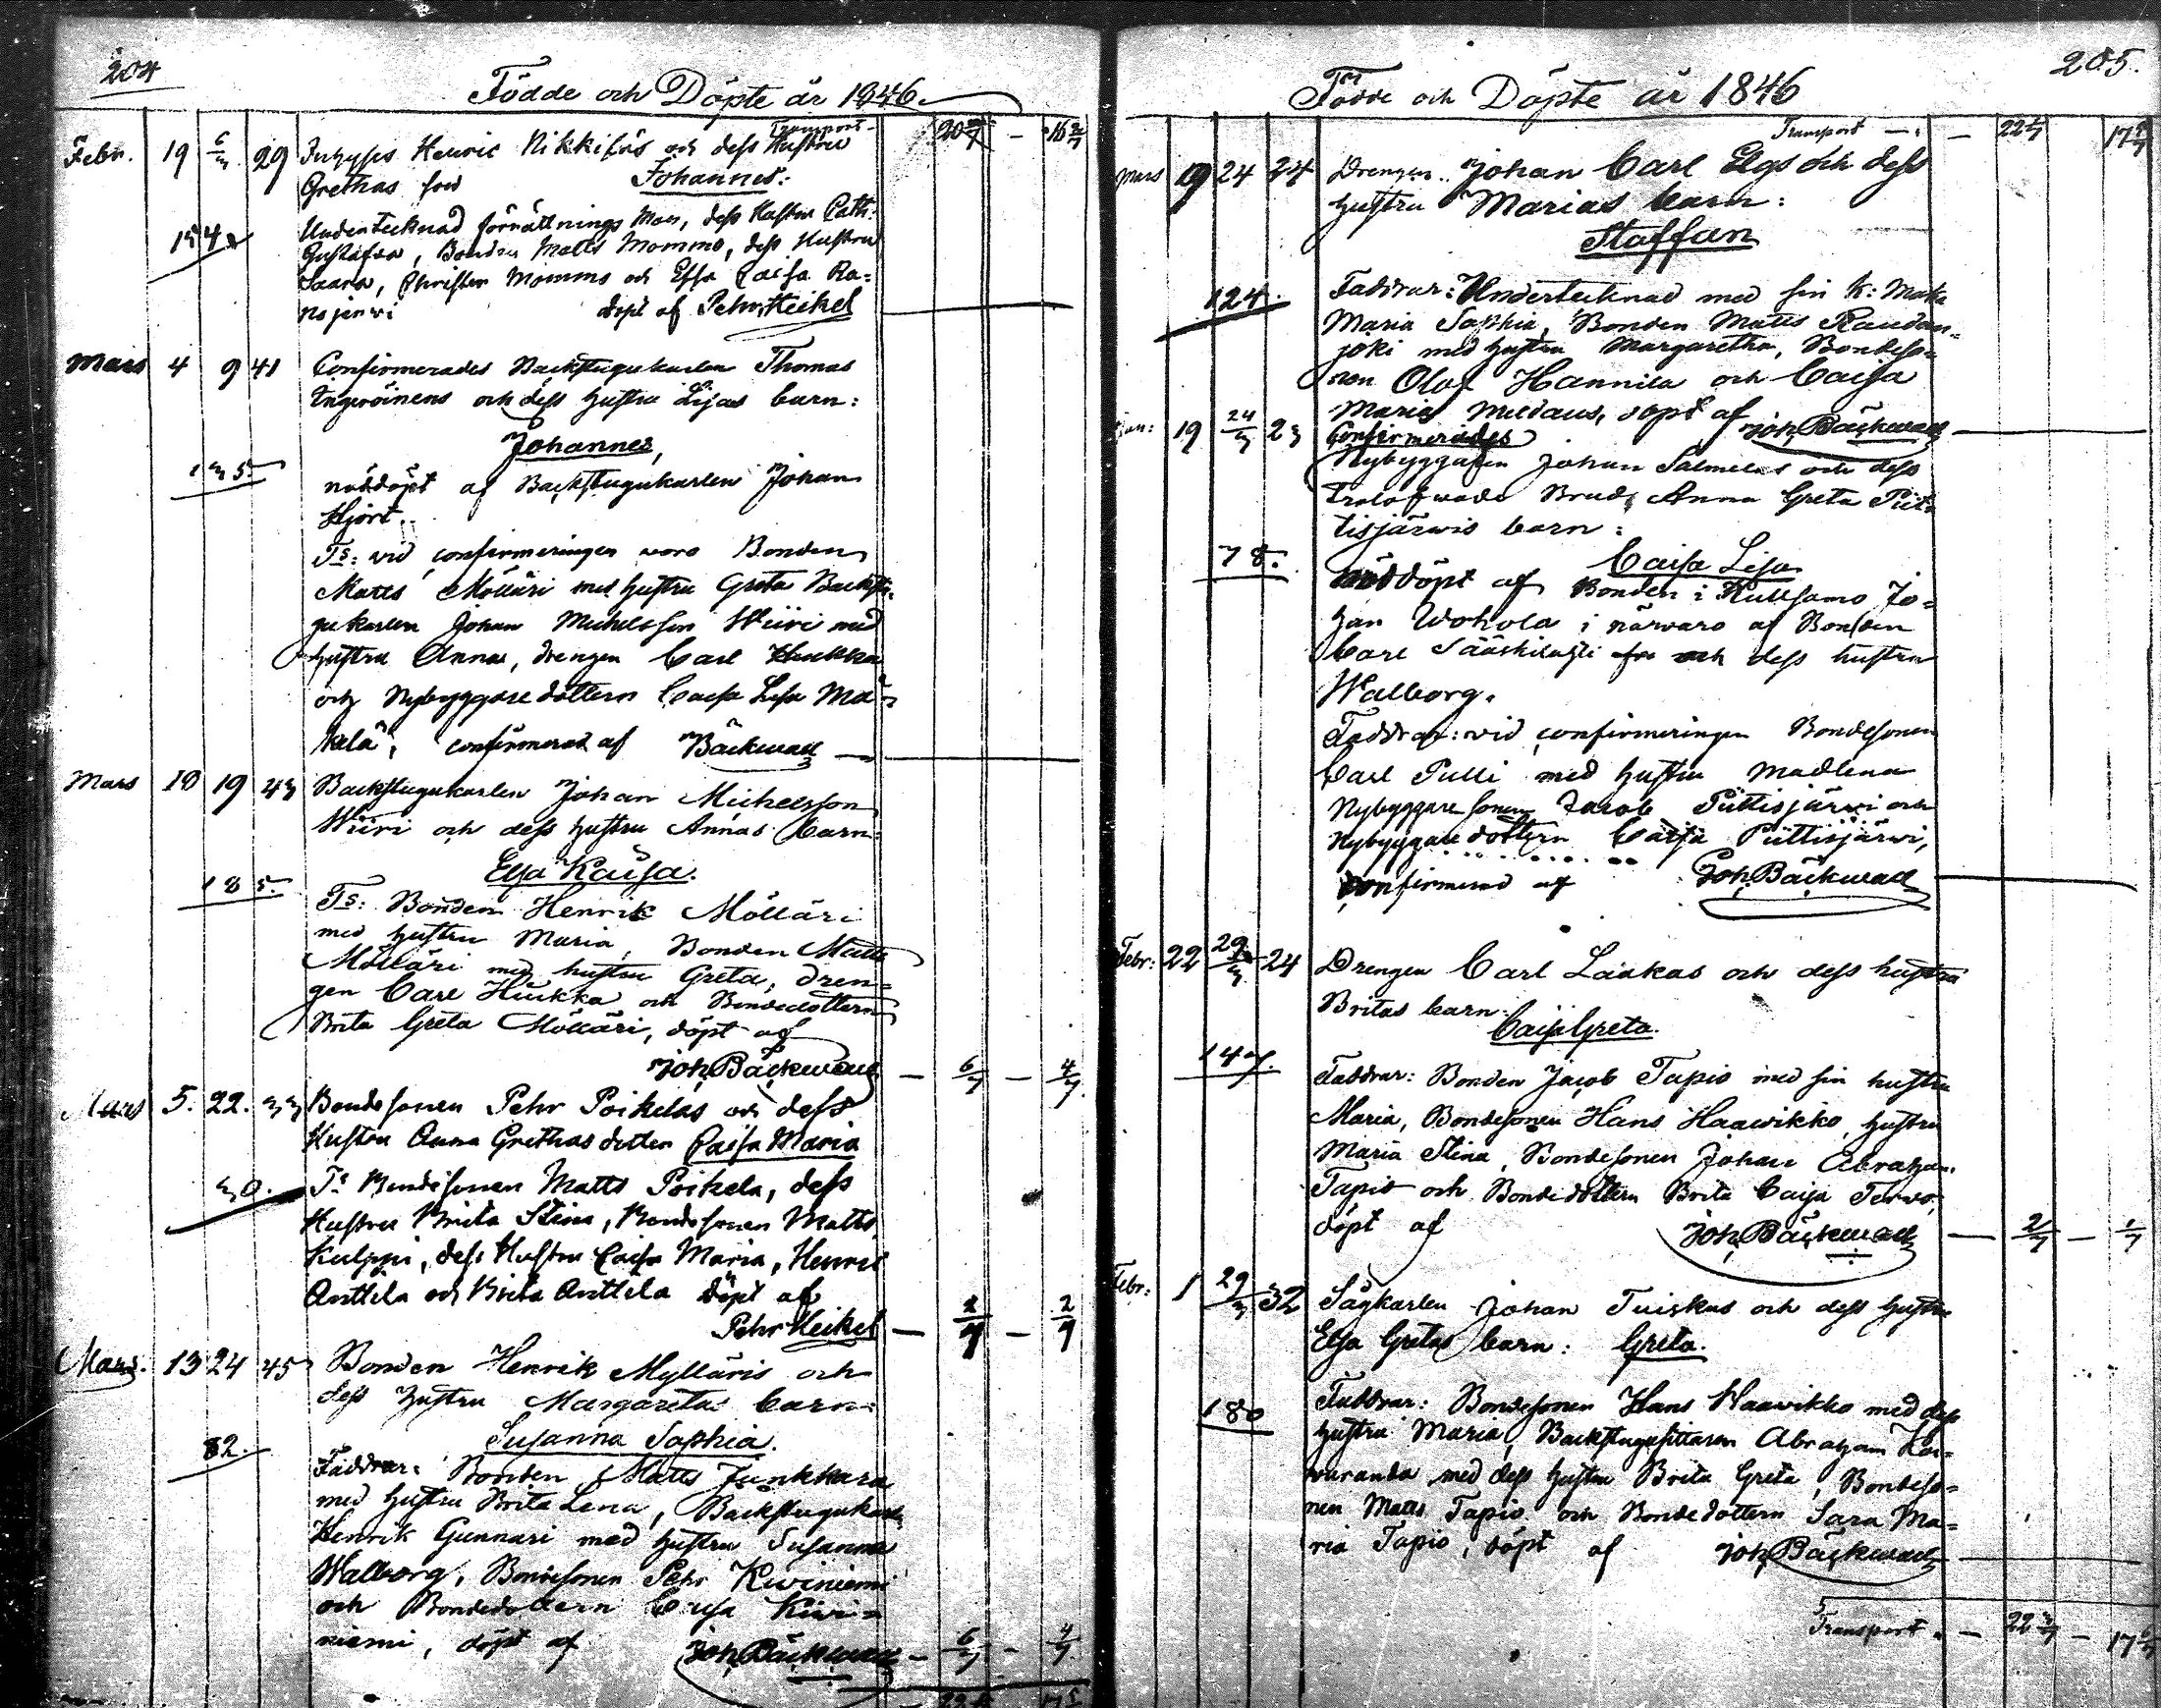 204
Födde och Döpte år 1846.
Transport 20 - 16
Febr. 19 6/3 29 Henric Nikkiläs och dess Hustru
Grethas son Johannes:
154
Undertecknad förrättnings Man, dess Hustru Cath:
Gustafva, Bonden Matts Mommo, dess Hustru
Saara, Christer Mommo och Caisa Ra=
nsjerwi döpt af Pehr Heikel
Mars 4 9 41 Confirmerades Backstugukarlen Thomas
och dess hustru Lisas barn:
Johannes,
135
nöddöpt af Backstugukarlen Johan
Hjort.
Ts: vid confirmeringen voro Bonden
Matts Mölläri med hustru Greta Backstu=
gukarlen Johan Michelsson Wiiri med
hustru Anna, drengen Carl Hukka
och Nybyggaredottern Caisa Lisa Mä=
kelä, confirmerad af Bäckwall
Mars 10 19 43 Backstugukarlen Johan Michelsson
Wiiri och dess hustru Annas barn:
Elsa Kaisa.
185.
Ts: Bonden Henrik Mölläri
med hustru Maria, Bonden Matts
Mölläri med hustru Greta, dren=
gen Carl Hukka och Bondedottern
Brita Greta Mölläri, döpt af
Joh Bäckwall — 6/7 — 4/7
Mars 5. 22. 33 Bondesonen Pehr Poikelas och dess
Hustru Anna Grethas dotter Caisa Maria
30.
Ts Bondesonen Matts Poikela, dess
Hustru Brita Stina, Bondesonen Matts
Kulppi, dess Hustru Caisa Maria, Henric
Anttila och Brita Anttila döpt af
Pehr Heikel — 2/7 — 2/7
Mars. 13 24 45 Bonden Henrik Mylläris och
dess hustru Margaretas barn:
Susanna Sophia.
82.
Faddrar: Bonden Matts Junkkara
med hustru Brita Lena, Backstugukarlen
Henrik Gunnari med hustru Susanna
Walborg, Bondesonen Pehr Kiviniemi
och Bondedottern Caisa Kivi=
niemi, döpt af Joh Bäckwall — 6/7 — 4/7
205.
Födde och Döpte år 1846
Transport — 22 17
Mars 19 24 24 Drengen Johan Carl Elgs och dess
hustru Marias barn:
Staffan
124.
Faddrar: Undertecknad med sin K: Maka
Maria Sophia, Bonden Matts Raudan=
joki med hustru Margaretha, Bondeso=
nen Olof Hannila och Caisa
Maria döpt af Joh Bäckwall
Jan: 19 24/3 23 Confirmerades
Nybyggaren Johan Salmelas och dess
trolofwade Brud Anna Greta Piit=
tisjärwis barn:
Caisa Lisa
78.
nöddöpt af Bonden i Kuusamo Jo=
han Wohola i närvaro af Bonden
Carl Sääskilahti och dess hustru
Walborg.
Faddrar: vid confirmeringen Bondesonen
Carl Pulli med hustru Madlena
Nybyggaresonen Jacob Piittisjärwi och
Nybyggaredottern Caisa Piittisjärwi,
confirmerad af Joh Bäckwall
Febr: 22 29/3 24 Drengen Carl Laakas och dess hustru
Britas barn:
Caisa Greta.
147.
Faddrar: Bonden Jacob Tapio med sin hustru
Maria, Bondesonen Hans Haawikko, hustru
Maria Stina, Bondesonen Johan Abraham
Tapio och Bondedottern Brita Caisa Terwo,
döpt af Joh Bäckwall — 2/7 — 1/7
Febr: 1 29/3 32 Sågkarlen Johan Tuiskus och dess hustru
Elsa Gretas barn: Greta.
180
Faddrar: Bondesonen Hans Haawikko med dess
hustru Maria, Backstugusittaren Abraham Kor=
waranda med dess hustru Brita Greta, Bondeso=
nen Matts Tapio och Bondedottern Sara Ma=
ria Tapio, döpt af Joh Bäckwall
Transport — 22 — 17